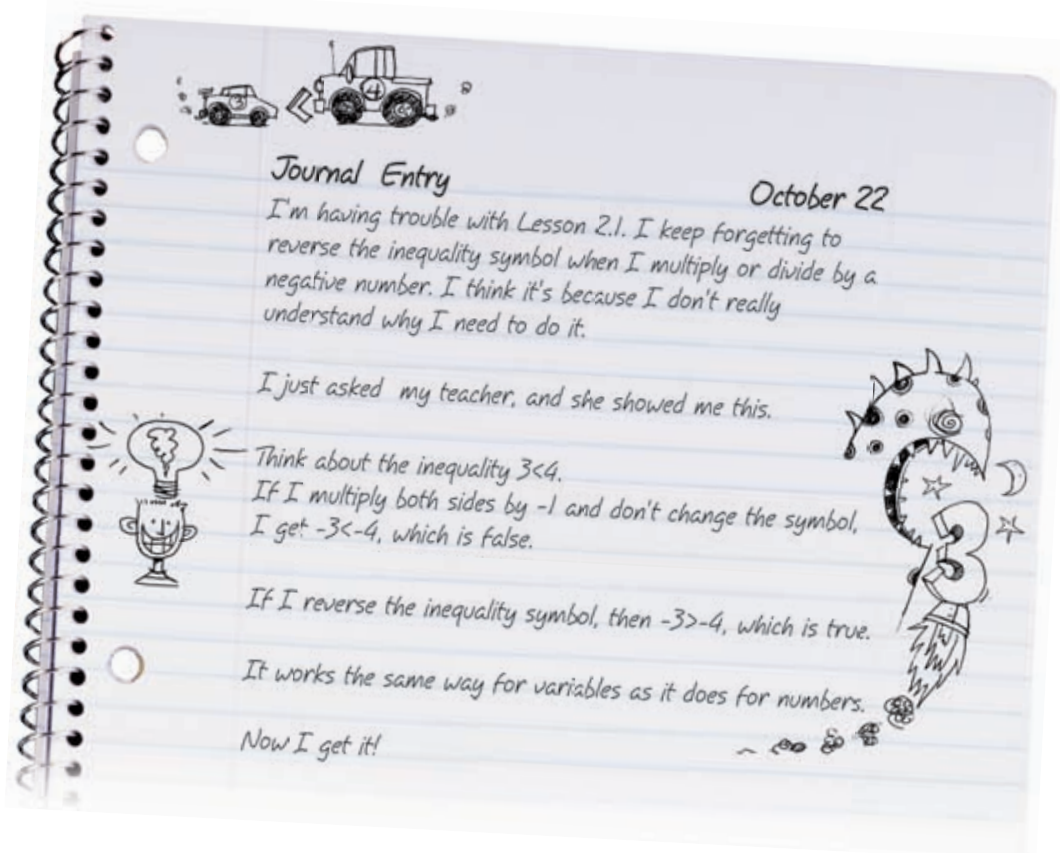 3 < 4
Journal Entry
October 22
I'm having trouble with Lesson 2.1. I keep forgetting to
reverse the inequality symbol when I multiply or divide by a
negative number. I think it's because I don't really
understand why I need to do it.
I just asked my teacher, and she showed me this.
Think about the inequality 3<4.
If I multiply both sides by -1 and don't change the symbol,
I get -3<-4, which is false.
If I reverse the inequality symbol, then -3>-4, which is true.
It works the same way for variables as it does for numbers.
Now I get it!
3